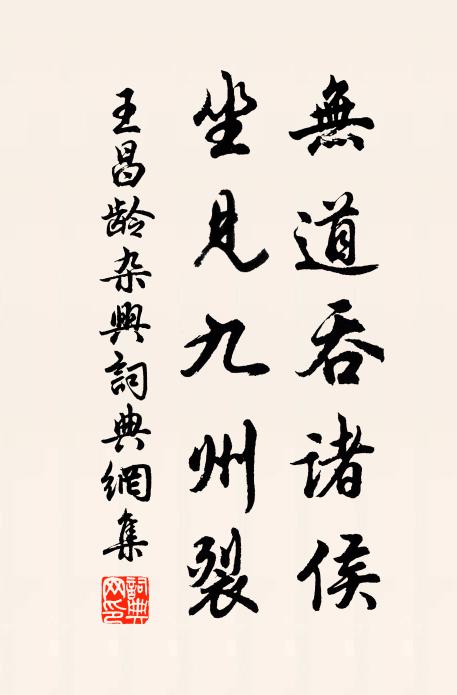 無道吞诸侯
坐見九州裂
王昌龄杂興詞典網集
詞典网印